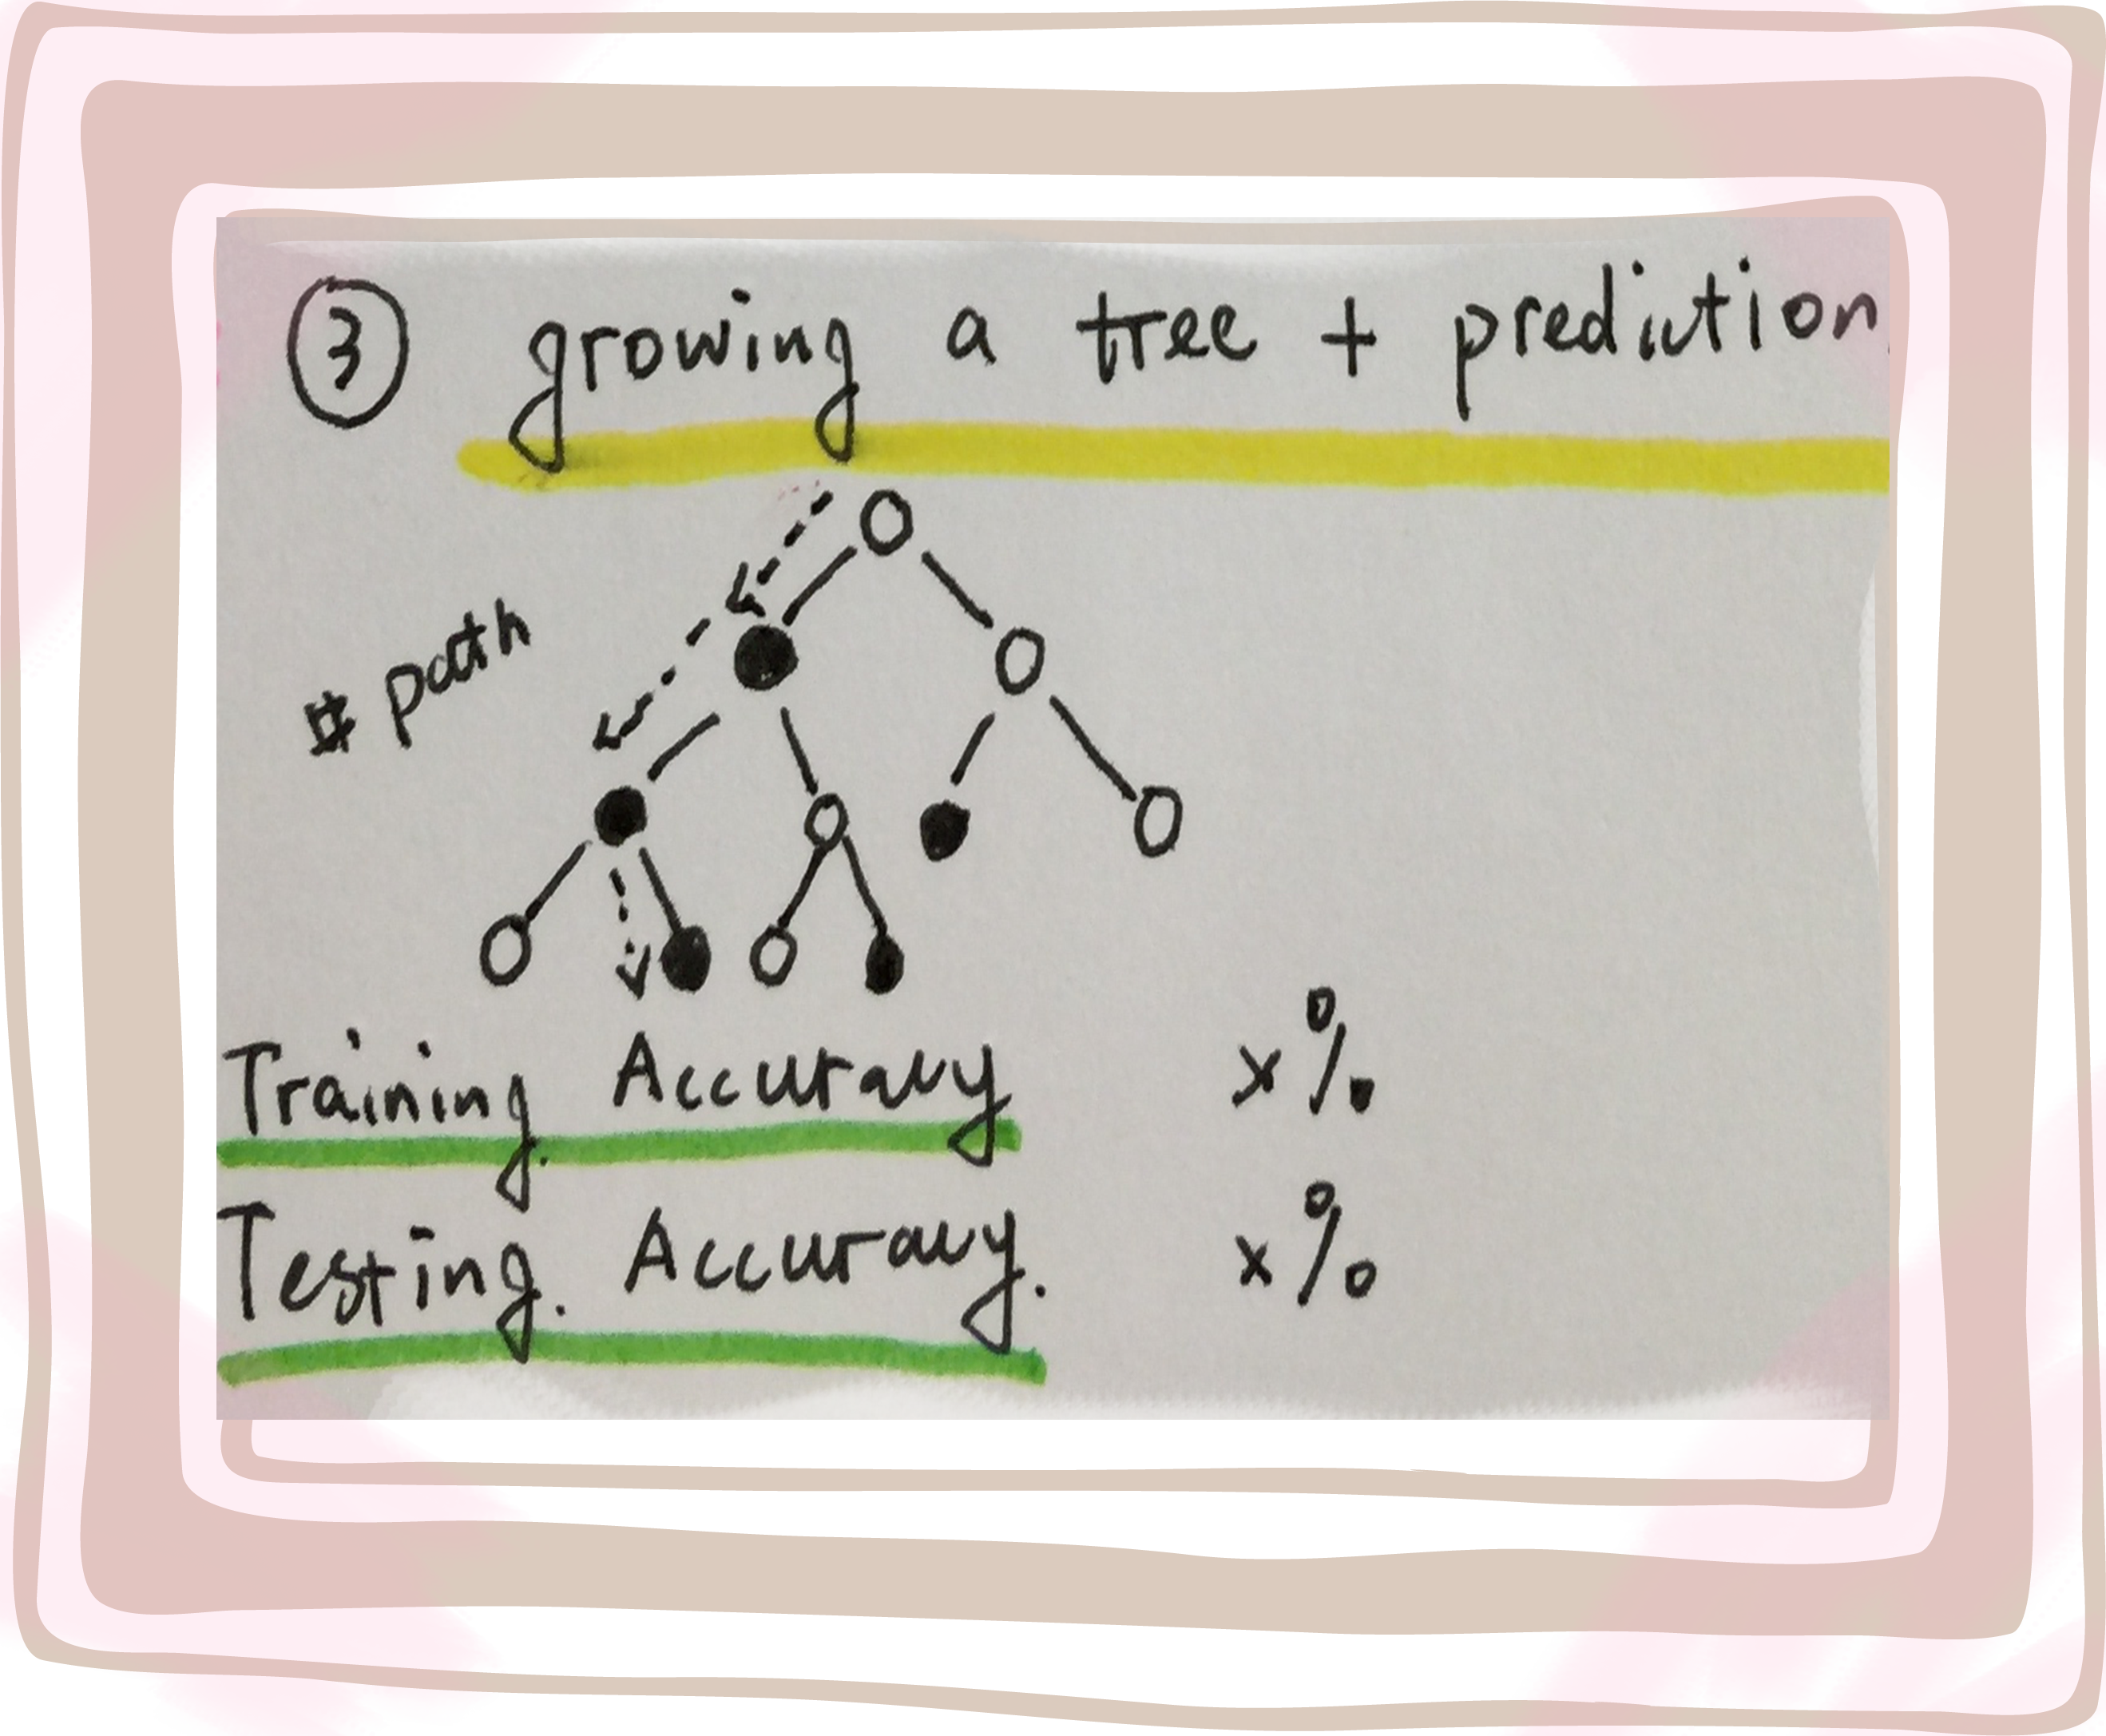 ③ growing a tree + prediction
# path
Training. Accuracy x%
Testing. Accuracy. x%